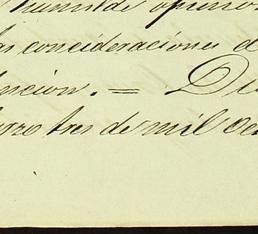 humilde opinion
las concideraciones d
encion. = Di
brero tres de mil oc